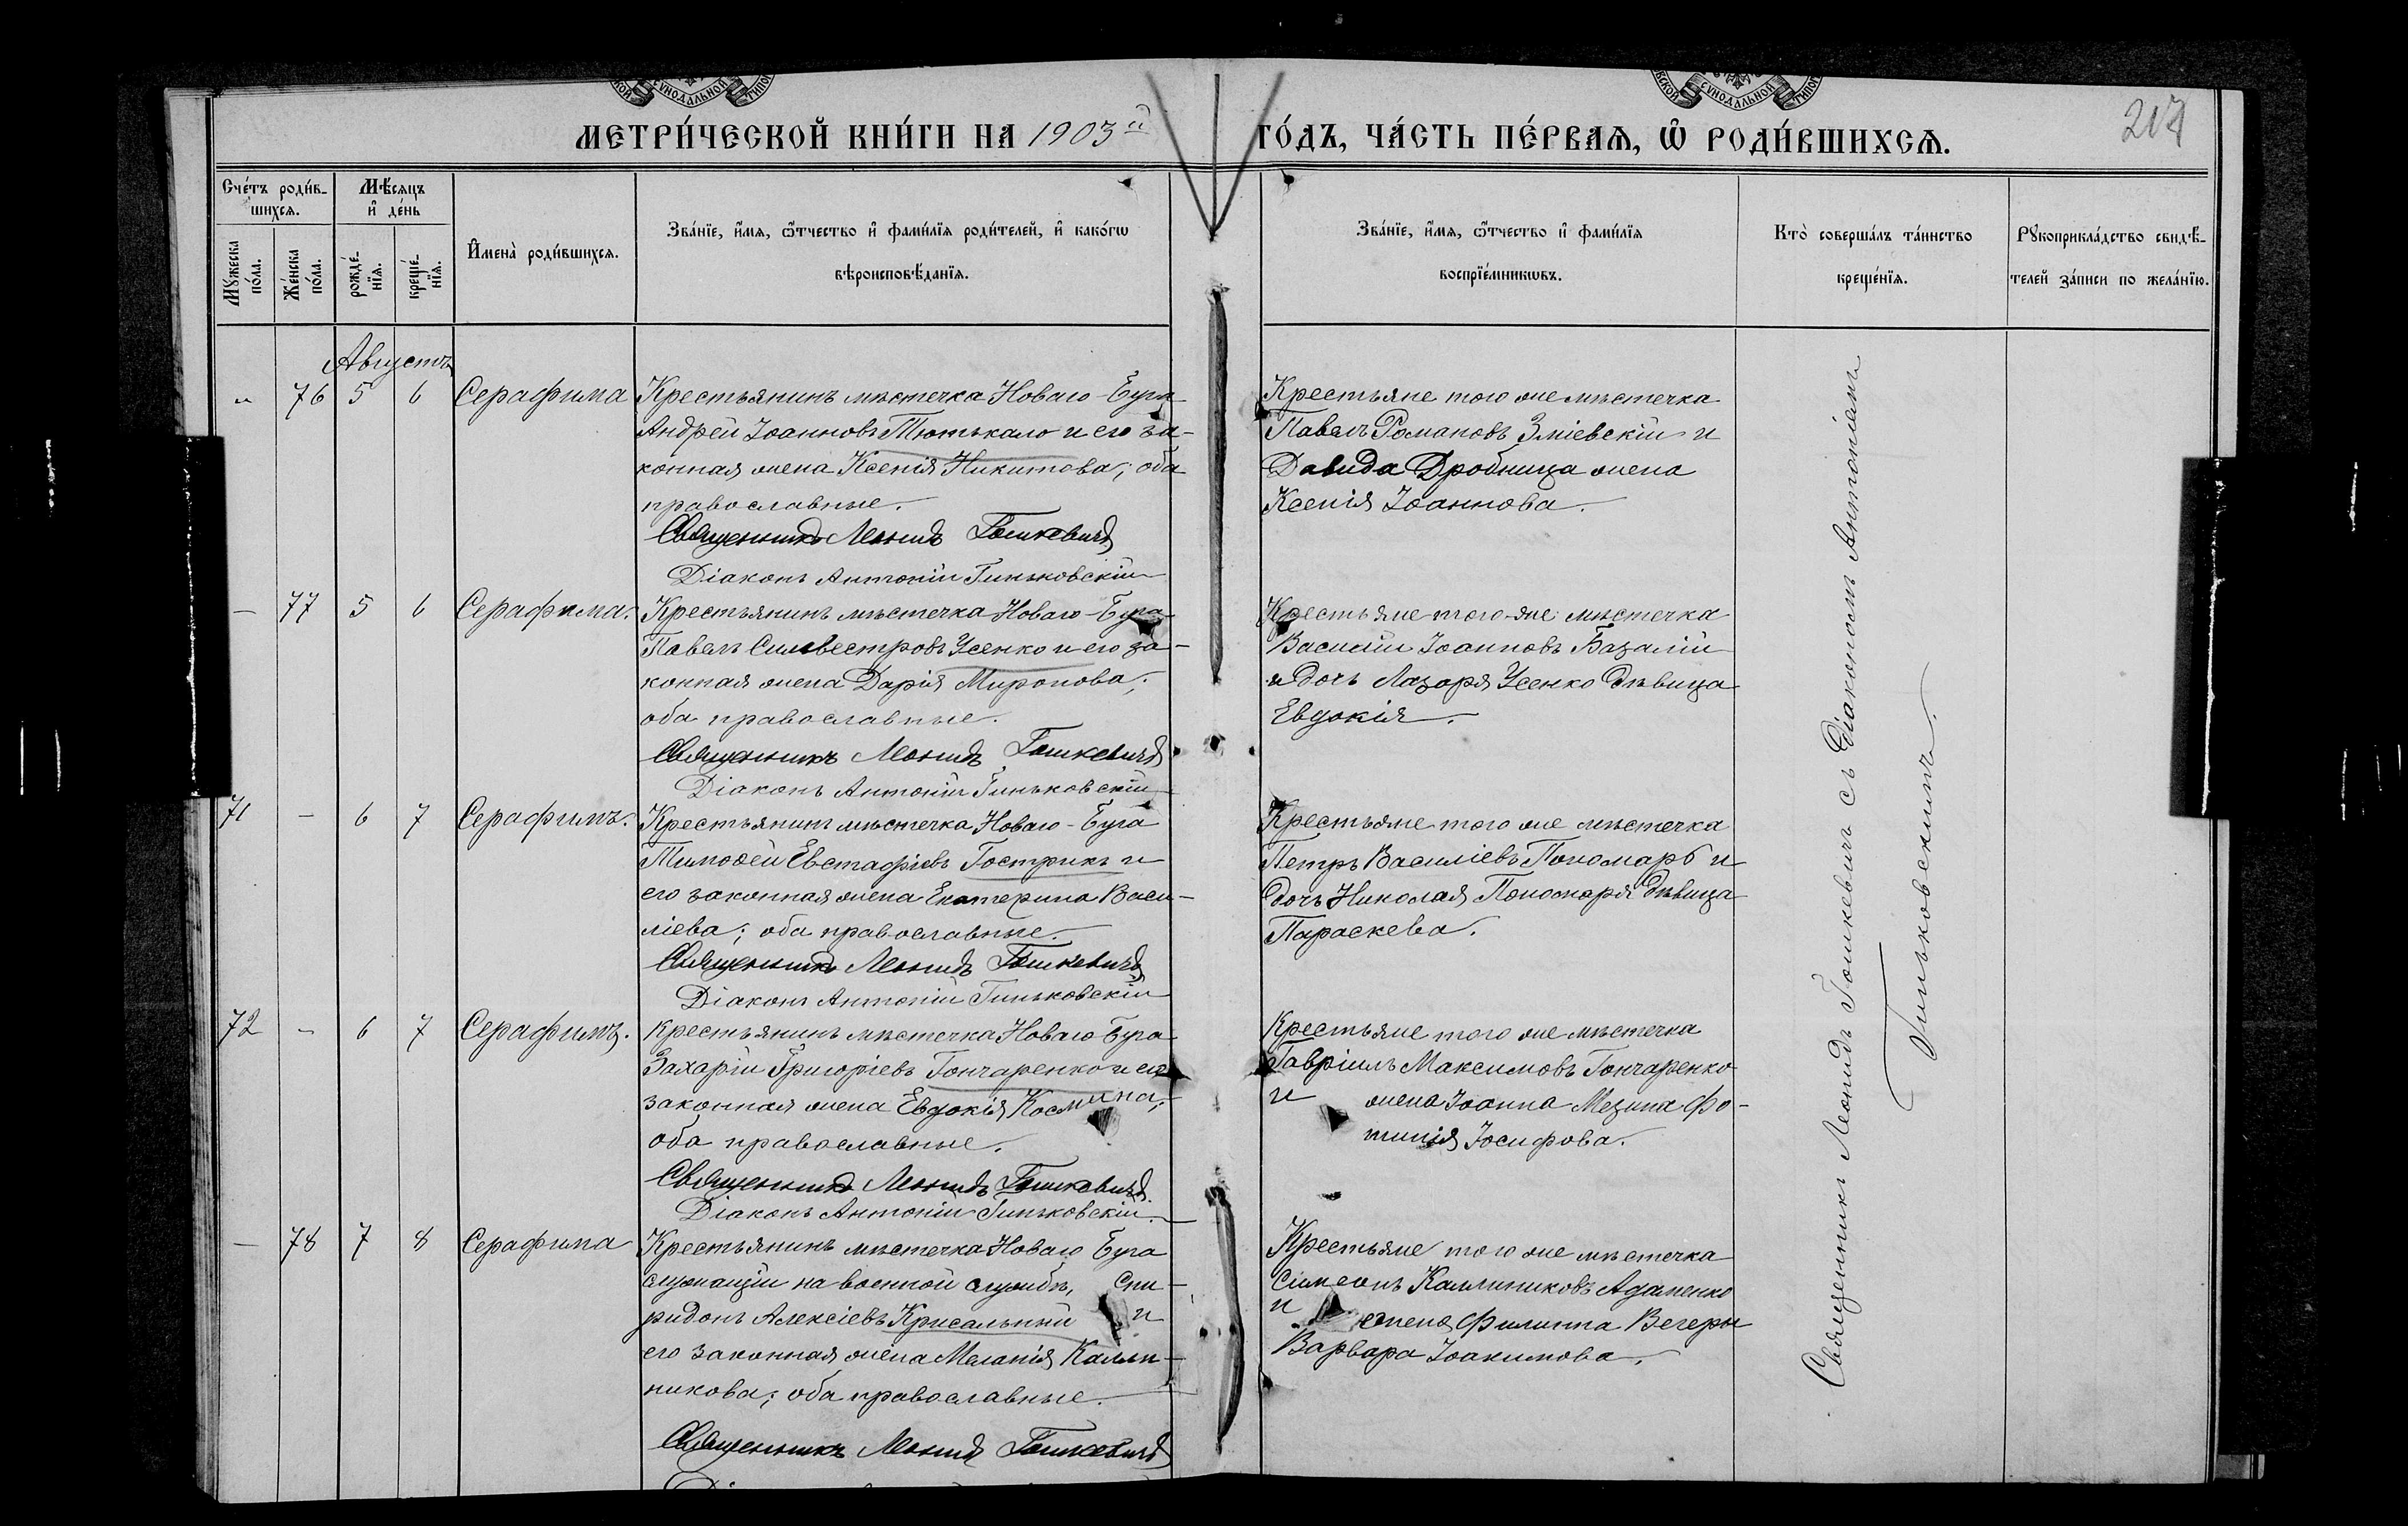 МЕТРИ́ЧЕСКОЙ КНИ́ГИ НА 1903й ГО́ДЪ, ЧА́СТЬ ПЕ́РВАѦ, Ѡ҆ РОДИ́ВШИХСѦ.
217
Сче́тъ роди́в-
шихсѧ.
Мѣ́сѧцъ
и҆ де́нь
Мꙋ́жеска
по́ла.
Же́нска
по́ла.
рожде́-
нїѧ.
креще́-
нїѧ.
И҆мена̀ роди́вшихсѧ.
Зва́нїе, и҆́мѧ, ѻ҆́тчество и҆ фами́лїѧ роди́телей, и҆ како́гѡ
вѣроисповѣ́данїѧ.
Зва́нїе, и҆́мѧ, ѻ҆́тчество и҆ фами́лїѧ
воспрїе́мникѡвъ.
Кто̀ соверша́лъ та́инство
креще́нїѧ.
Рꙋкоприкла́дство свидѣ́-
телей за́писи по жела́нїю.
Августъ
„ 76 5 6 Серафима
Крестьянинъ мѣстечка Новаго-Буга
Андрей Іоанновъ Тютькало и его за-
конная жена Ксенія Никитова; оба
православные.
Священникъ Леонидъ Гошкевичъ
Діаконъ Антоній Гиньковскій
Крестьяне того же мѣстечка
Павелъ Романовъ Зміевскій и
Давида Дробница жена
Ксенія Іоаннова.
— 77 5 6 Серафима.
Крестьянинъ мѣстечка Новаго-Буга
Павелъ Силвестровъ Усенко и его за-
конная жена Дарія Миронова;
оба православные.
Священникъ Леонидъ Гошкевичъ
Діаконъ Антоній Гиньковскій
Крестьяне того-же мѣстечка
Василій Іоанновъ Базалій
и дочь Лазоря Усенко дѣвица
Евдокія.
71 — 6 7 Серафимъ.
Крестьянинъ мѣстечка Новаго-Буга
Тимоѳей Евстафіевъ Гострикъ и
его законная жена Екатерина Васи-
ліева; оба православные.
Священникъ Леонидъ Гошкевичъ
Діаконъ Антоній Гиньковскій
Крестьяне того же мѣстечка
Петръ Василіевъ Пономарь и
дочь Николая Пономаря дѣвица
Параскева.
72 — 6 7 Серафимъ.
Крестьянинъ мѣстечка Новаго Буга
Захарій Григоріевъ Гончаренко и его
законная жена Евдокія Космина;
оба православные.
Священникъ Леонидъ Гошкевичъ.
Діаконъ Антоній Гиньковскій.
Крестьяне того же мѣстечка
Гавріилъ Максимовъ Гончаренко
и жена Іоанна Мезина Фо-
тинія Іосифова.
— 78 7 8 Серафима
Крестьянинъ мѣстечка Новаго Буга
служащій на военной службѣ, Спи-
ридонъ Алексіевъ Крисальный и
его законная жена Меланія Калли-
никова; оба православные.
Священникъ Леонидъ Гошкевичъ
Крестьяне того же мѣстечка
Симеонъ Каллиниковъ Адаменко
и жена Филиппа Вечеры
Варвара Іоакимова.
Священникъ Леонидъ Гошкевичъ съ Діакономъ Антоніемъ
Гиньковскимъ.